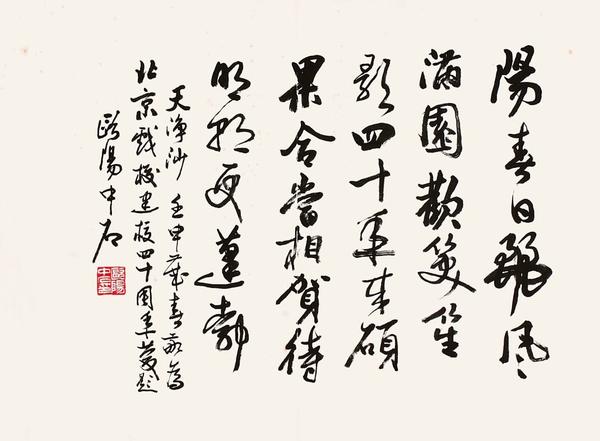 陽春日麗風
滿園歡笑笙
歌四十年來碩
果合當相賀待
明朝更蓬勃
天淨沙 壬申歲春為
北京戲校建校四十周年題
歐陽中石